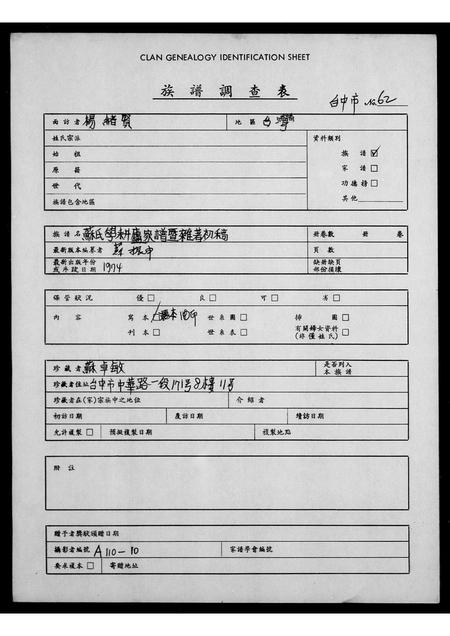 CLAN GENEALOGY IDENTIFICATION SHEET
族譜調查表
台中市 No.62
面訪者 楊緒賢 地區 台灣
姓氏宗派 資料類別
始祖 族譜 ☑
原籍 家譜 □
世代 功德榜 □
族譜包含地區 其他
族譜名 蘇氏學耕廬家譜暨雜著初稿 冊卷數 冊 卷
最新版本編纂者 蘇振申 頁數
最新出版年份 缺冊缺頁
或手跋日期 1974 部份損壞
保管狀況 優 □ 良 □ 可 □ 劣 □
內容 寫本 影印 世系圖 □ 排圖 □
刊本 □ 世系表 □ 有關婦女資料 □
(非僅姓氏)
珍藏者 蘇卓敏 是否列入
本族譜
珍藏者住址 台中市中華路一段171號8樓11号
珍藏者在(家)宗族中之地位 介紹者
初訪日期 覆訪日期 續訪日期
允許複製 □ 預擬複製日期 複製地點
附註
贈予者獎狀頒贈日期
攝影者編號 A110-10 家譜學會編號
要求複本 □ 寄贈地址